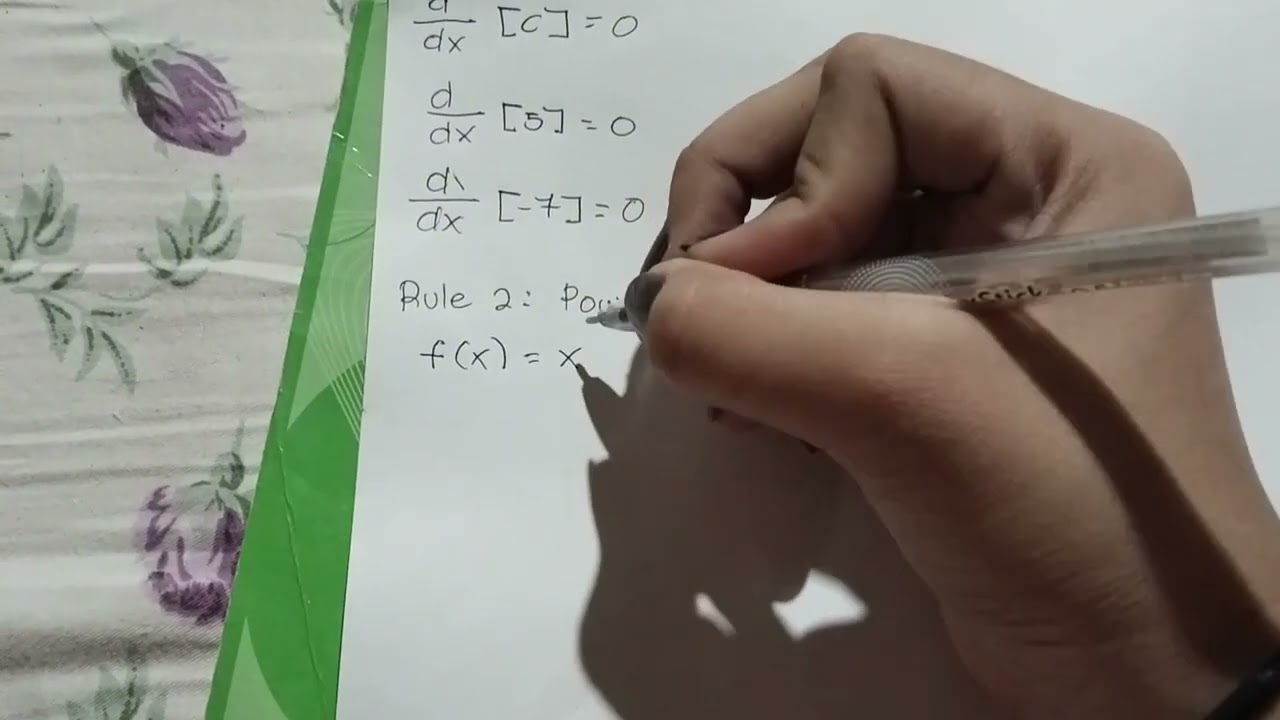 d/dx [c] = 0
d/dx [5] = 0
d/dx [-7] = 0
Rule 2:
f(x) = x